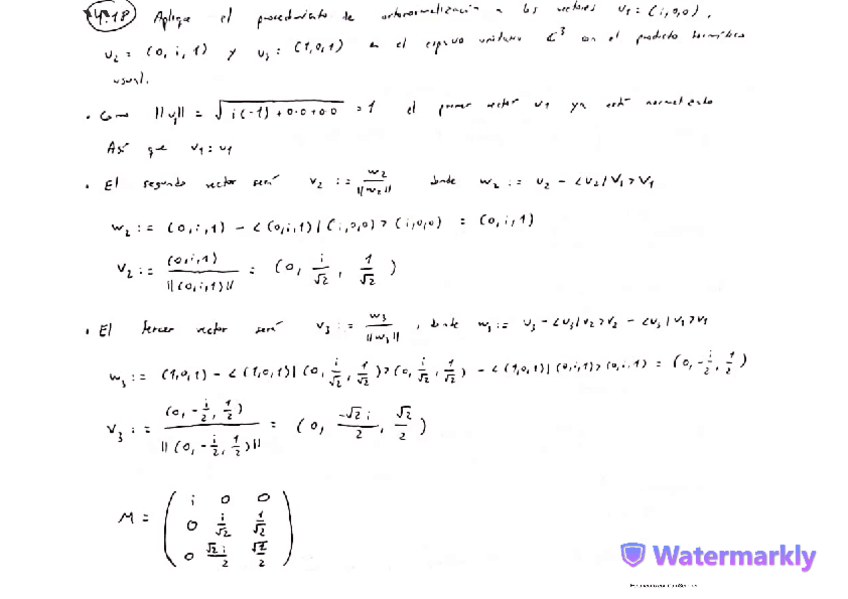 4.18 Aplique el procedimiento de ortonormalización a los vectores v₁ = (i,0,0),
v₂ = (0, i, 1) y v₃ = (1,0,1) en el espacio unitario ℂ³ con el producto hermítico
usual.
• Como ||v₁|| = √(i(-i) + 0·0 + 0·0) = 1 el primer vector v₁ ya está normalizado
Así que v₁ = u₁
• El segundo vector será v₂ := w₂/||w₂|| donde w₂ := u₂ - <u₂|v₁>v₁
w₂ := (0,i,1) - <(0,i,1)|(i,0,0)>(i,0,0) = (0,i,1)
v₂ := (0,i,1)/||(0,i,1)|| = (0, i/√2, 1/√2)
• El tercer vector será v₃ := w₃/||w₃||, donde w₃ := u₃ - <u₃|v₂>v₂ - <u₃|v₁>v₁
w₃ := (1,0,1) - <(1,0,1)|(0, i/√2, 1/√2)>(0, i/√2, 1/√2) - <(1,0,1)|(0,i,1)>(0,i,1) = (0, -i/2, 1/2)
v₃ := (0, -i/2, 1/2)/||(0, -i/2, 1/2)|| = (0, -√2i/2, √2/2)
M = ( i 0 0
0 i/√2 1/√2
0 √2i/2 √2/2 )
Watermarkly